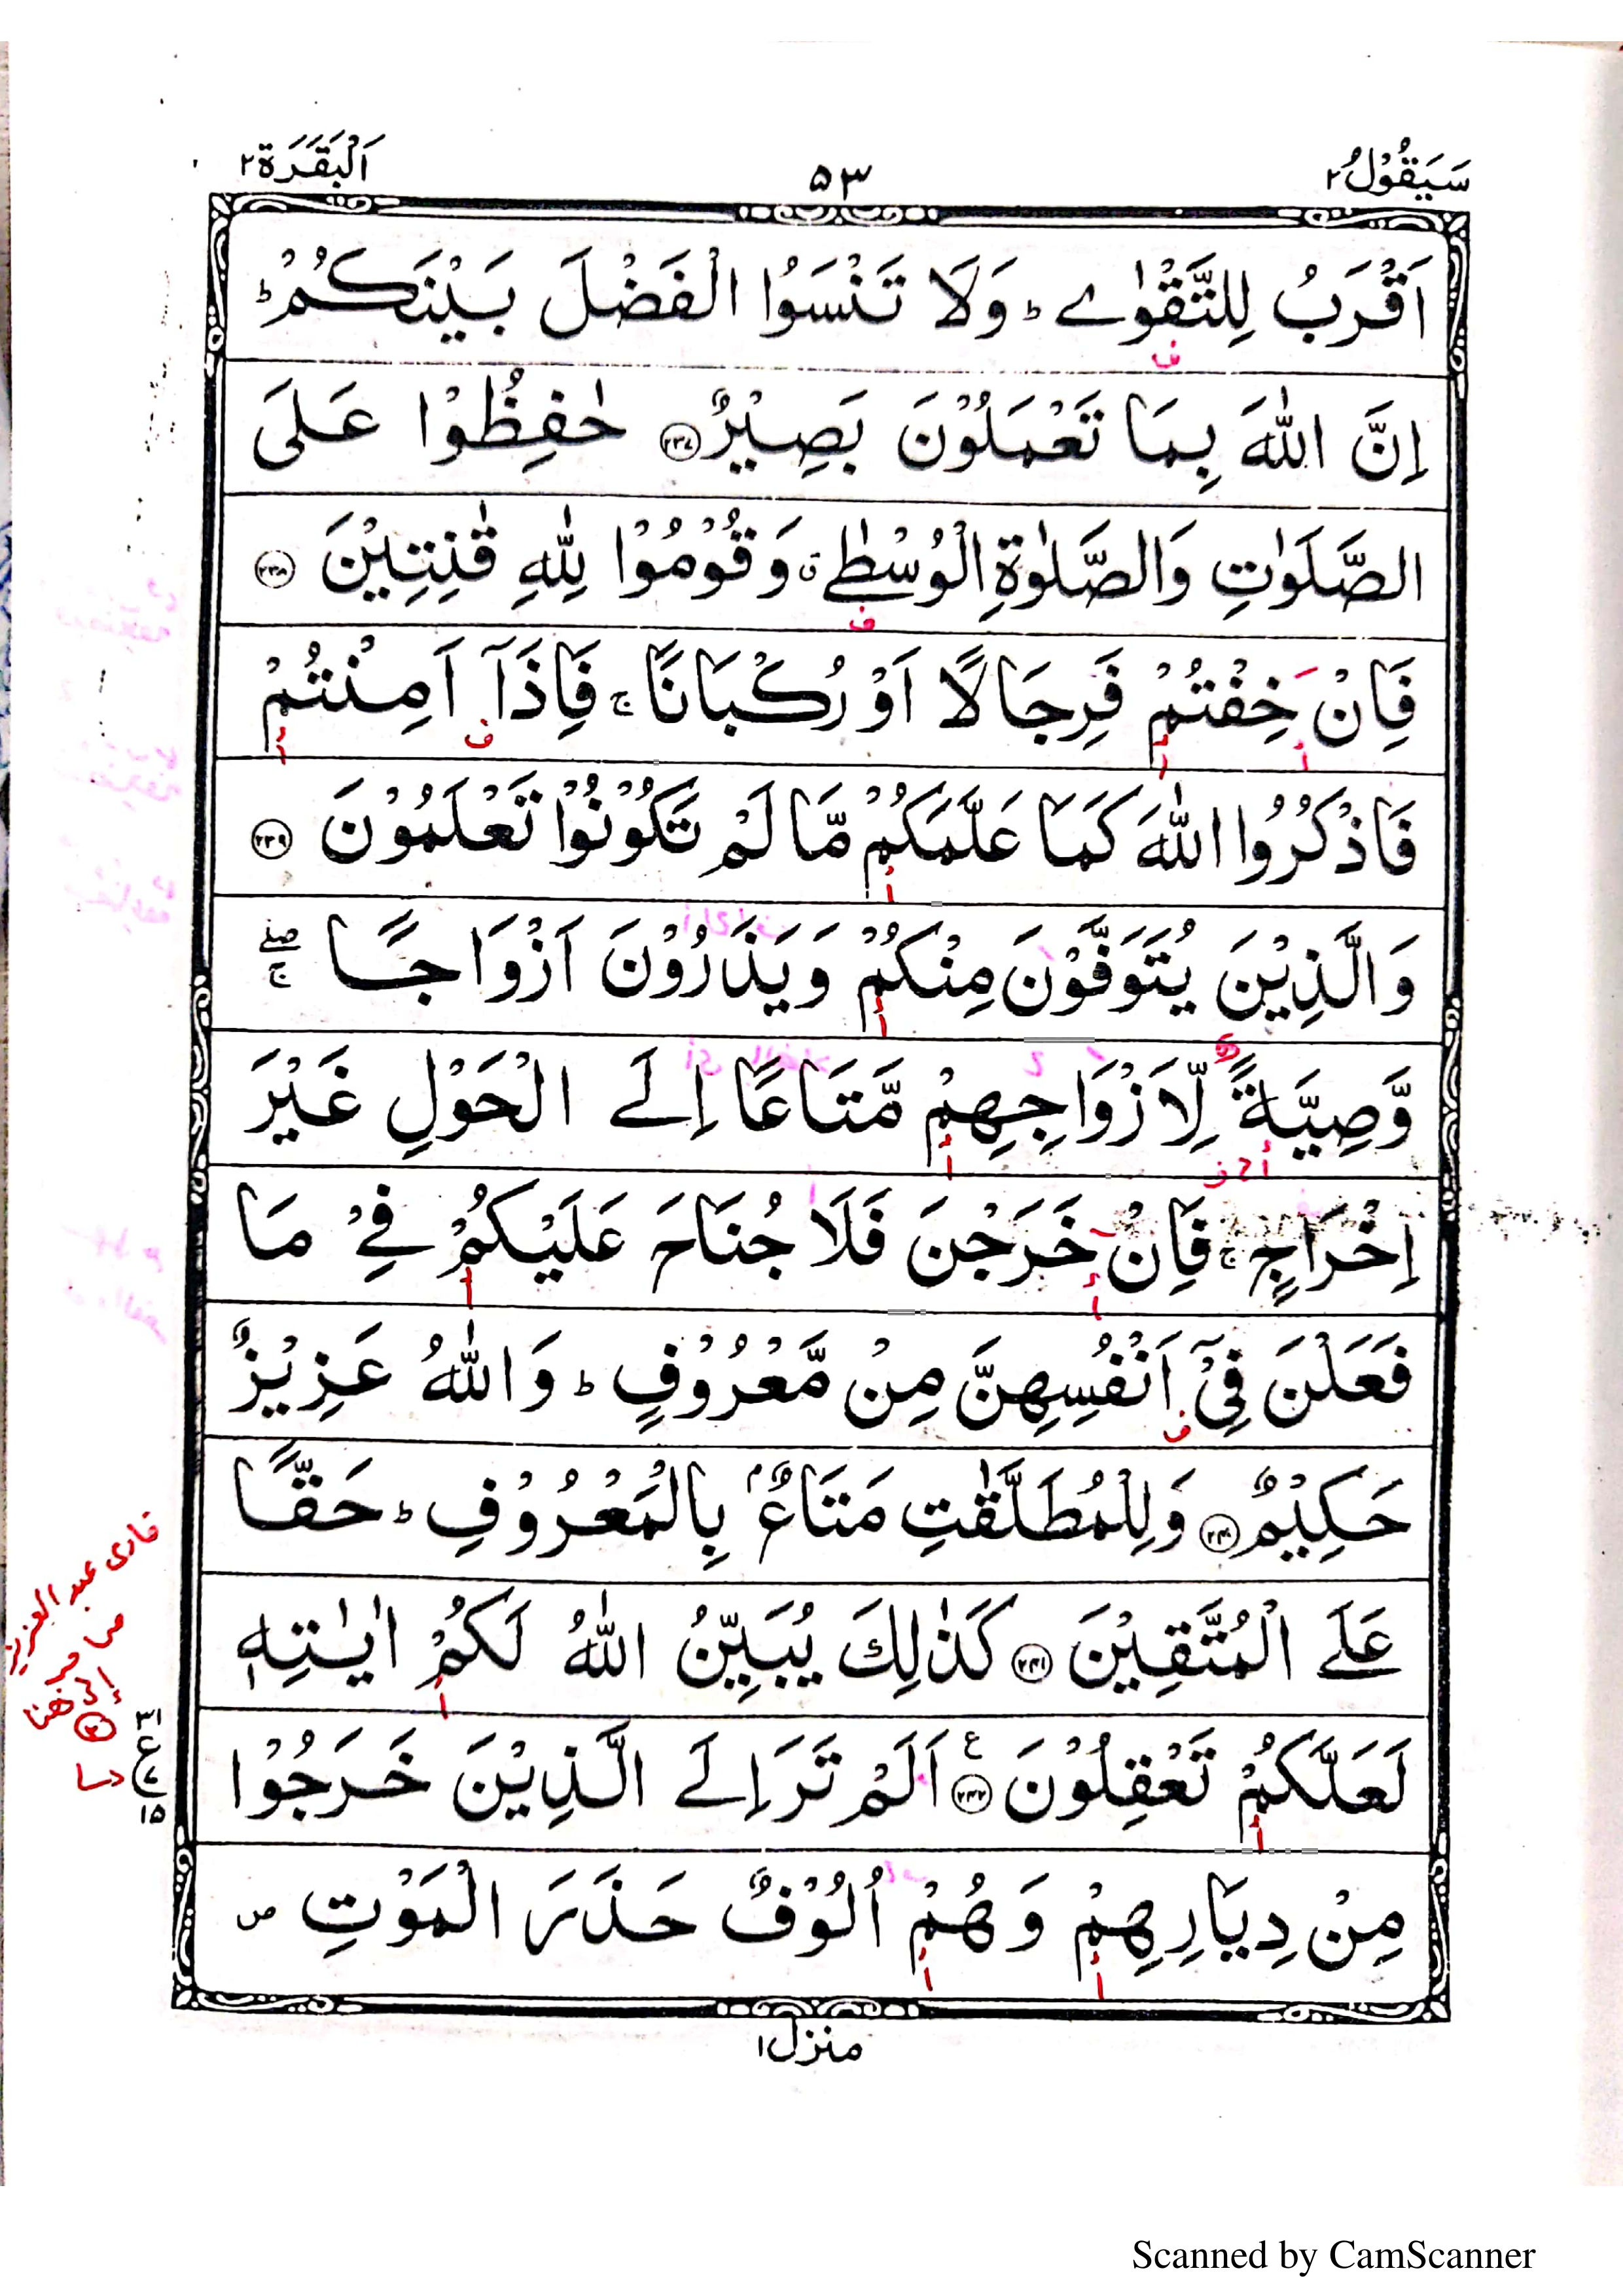 سَيَقُوْلُ ٢
٥٣
اَلْبَقَرَة ٢
اَقْرَبُ لِلتَّقْوٰےؕ وَلَا تَنْسَوُا الْفَضْلَ بَيْنَكُمْؕ
اِنَّ اللّٰهَ بِمَا تَعْمَلُوْنَ بَصِيْرٌ ﴿٢٣٧﴾ حٰفِظُوْا عَلَى
الصَّلَوٰتِ وَالصَّلٰوةِ الْوُسْطٰےۗ وَقُوْمُوْا لِلّٰهِ قٰنِتِيْنَ ﴿٢٣٨﴾
فَاِنْ خِفْتُمْ فَرِجَالًا اَوْ رُكْبَانًاۚ فَاِذَآ اَمِنْتُمْ
فَاذْكُرُوا اللّٰهَ كَمَا عَلَّمَكُمْ مَّا لَمْ تَكُوْنُوْا تَعْلَمُوْنَ ﴿٢٣٩﴾
وَالَّذِيْنَ يُتَوَفَّوْنَ مِنْكُمْ وَيَذَرُوْنَ اَزْوَاجًا ۖۚ
وَّصِيَّةً لِّاَزْوَاجِهِمْ مَّتَاعًا اِلَے الْحَوْلِ غَيْرَ
اِخْرَاجٍۚ فَاِنْ خَرَجْنَ فَلَا جُنَاحَ عَلَيْكُمْ فِےْ مَا
فَعَلْنَ فِيْٓ اَنْفُسِهِنَّ مِنْ مَّعْرُوْفٍؕ وَاللّٰهُ عَزِيْزٌ
حَكِيْمٌ ﴿٢٤٠﴾ وَلِلْمُطَلَّقٰتِ مَتَاعٌۢ بِالْمَعْرُوْفِؕ حَقًّا
عَلَے الْمُتَّقِيْنَ ﴿٢٤١﴾ كَذٰلِكَ يُبَيِّنُ اللّٰهُ لَكُمْ اٰيٰتِهٖ
لَعَلَّكُمْ تَعْقِلُوْنَ ﴿٢٤٢﴾ ع اَلَمْ تَرَ اِلَے الَّذِيْنَ خَرَجُوْا
مِنْ دِيَارِهِمْ وَهُمْ اُلُوْفٌ حَذَرَ الْمَوْتِ ص
قاری عبد العزيز
٣١
ع
١٥
منزل ١
Scanned by CamScanner